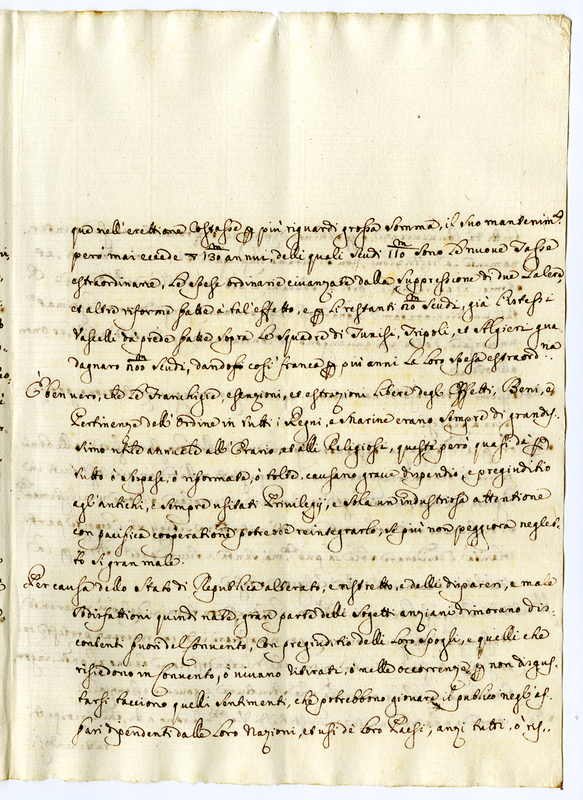 que nell'erettione costasse per più riguardi grossa somma, il suo mantenim.to
però mai eccede 130 annui, delli quali scudi 110 sono le nuove Tasse
estraordinarie, le spese ordinarie avanzate dalla suppressione di due Galere
et altre riforme fatte a tal'effetto, e per li restanti 20 scudi, già l'istessi
Vascelli da prede fatte sopra le squadre di Tunisi, Tripoli, et Algieri gua
dagnaro scudi, dandosi così franca per più anni la loro spesa estraord.na
È ben vero, che le Franchigie, esenzioni, et estrazioni libere degl'Effetti, Beni, e
Pertinenze dell'Ordine in tutti i Regni, e Marine erano sempre di grandis-
simo utile annuale all'Erario, et alli Religiosi, queste però quasi da per
tutto ò sospese, ò riformate, ò tolte, causano grave dispendio, e pregiuditio
agl'antichi, e sempre usitati Privilegij, e sola un'industriosa attentione
con pacifica cooperatione potrebbe reintegrarlo, se più non peggiora negl'ef-
si gran male.
Per causa dello Stato di Republica alterato, e ristretto, e delli dispareri, e male
sodisfattioni quindi nate, gran parte delli sogetti anziani dimorano dis-
contenti fuori del Convento, con pregiuditio delli loro spogli, e quelli che
risiedono in Convento, ò vivano ritirati, ò nelle occorrenze per non disgus-
tarsi tacciono quelli sentimenti, che potrebbono giovare il publico negl'af-
fari dipendenti dalle loro Nazioni, et usi de loro Paesi, anzi tutti, ò ris..